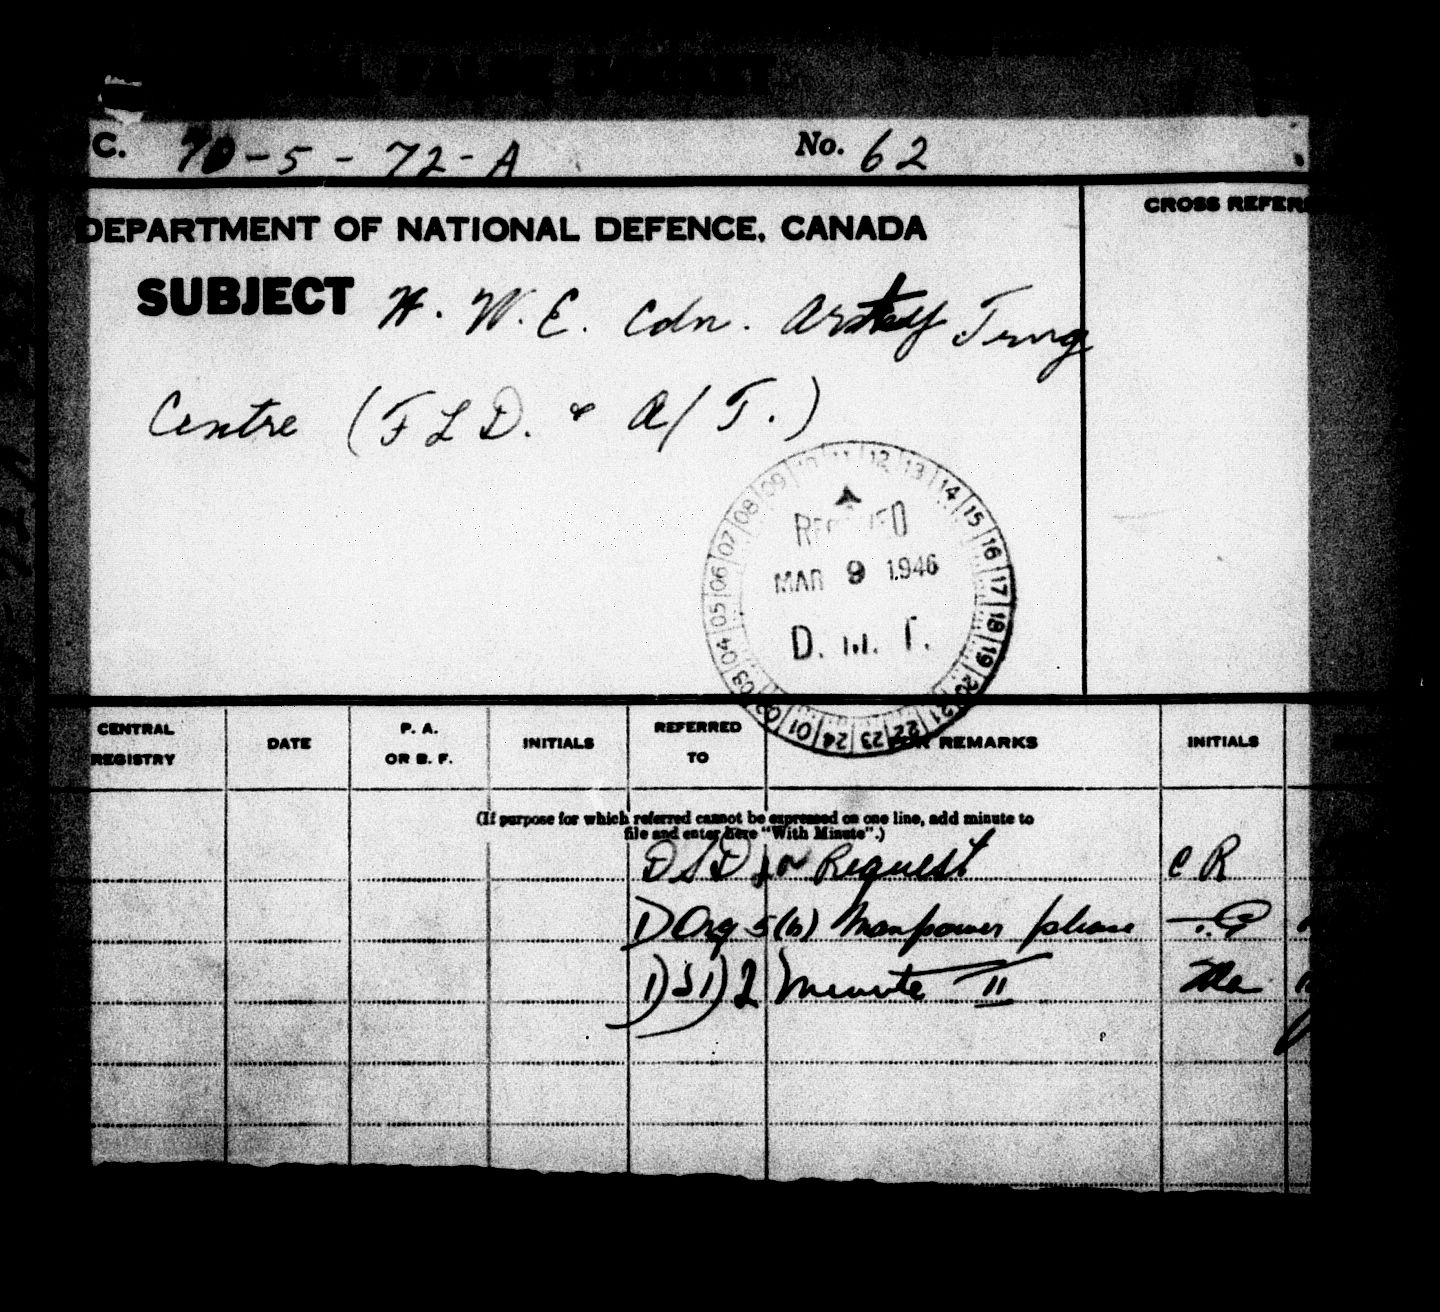 C. 70-5-72-A No. 62
CROSS REFER
DEPARTMENT OF NATIONAL DEFENCE, CANADA
SUBJECT H. W. E. Cdn. Arty Trng
Centre (FLD. & A/T.)
09 10 11 12 13 14 15 16 17 18 19 20 21 22 23 24 01 02 03 04 05 06 07 08
RECEIVED
MAR 9 1946
D. M. T.
CENTRAL REGISTRY DATE P. A. OR B. F. INITIALS REFERRED TO REMARKS INITIALS
(If purpose for which referred cannot be expressed on one line, add minute to
file and enter here "With Minute".)
DSD for Request CR
D Org 5(b) Manpower please
DSD 2 Minute II